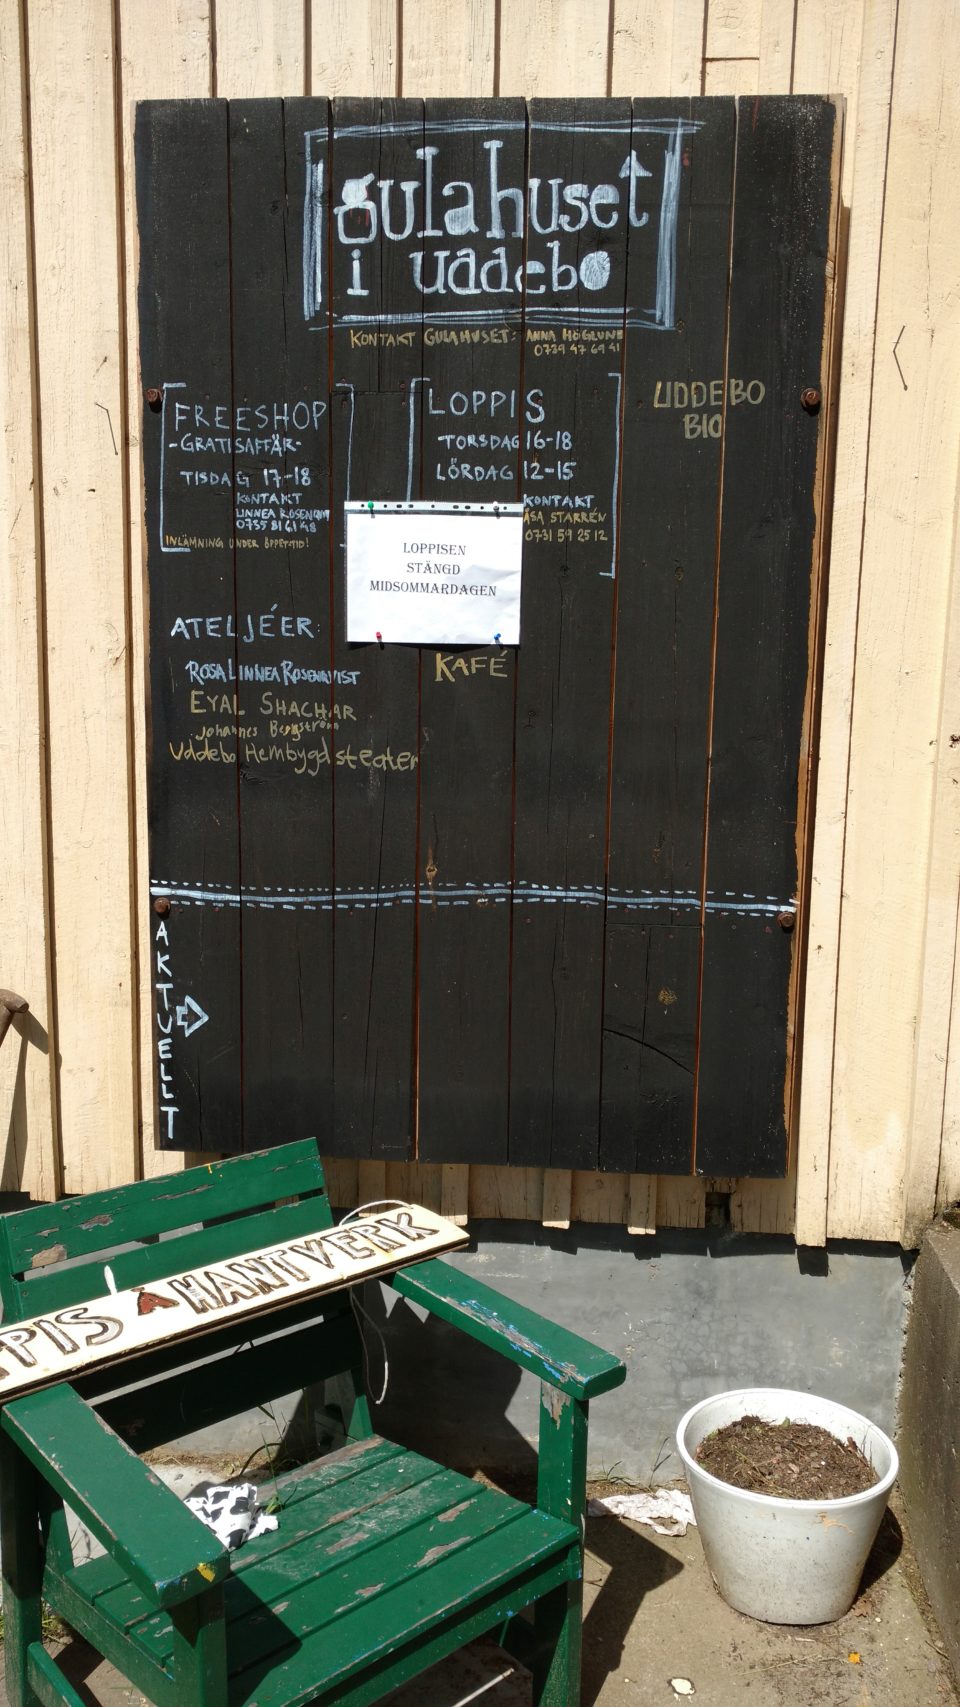 gulahuset
i uddebo
KONTAKT GULAHUSET: ANNA HÖGLUND
0739 47 69 41
FREESHOP
-GRATISAFFÄR-
TISDAG 17-18
KONTAKT
LINNEA ROSENQVIST
0735 81 61 48
INLÄMNING UNDER ÖPPETTID!
LOPPIS
TORSDAG 16-18
LÖRDAG 12-15
KONTAKT
ÅSA STARRÉN
0731 59 25 12
UDDEBO
BIO
LOPPISEN
STÄNGD
MIDSOMMARDAGEN
ATELJÉER:
ROSA LINNEA ROSENQVIST
EYAL SHACHAR
Johannes Bergström
Uddebo Hembygdsteater
KAFÉ
AKTUELLT
PPIS & HANTVERK